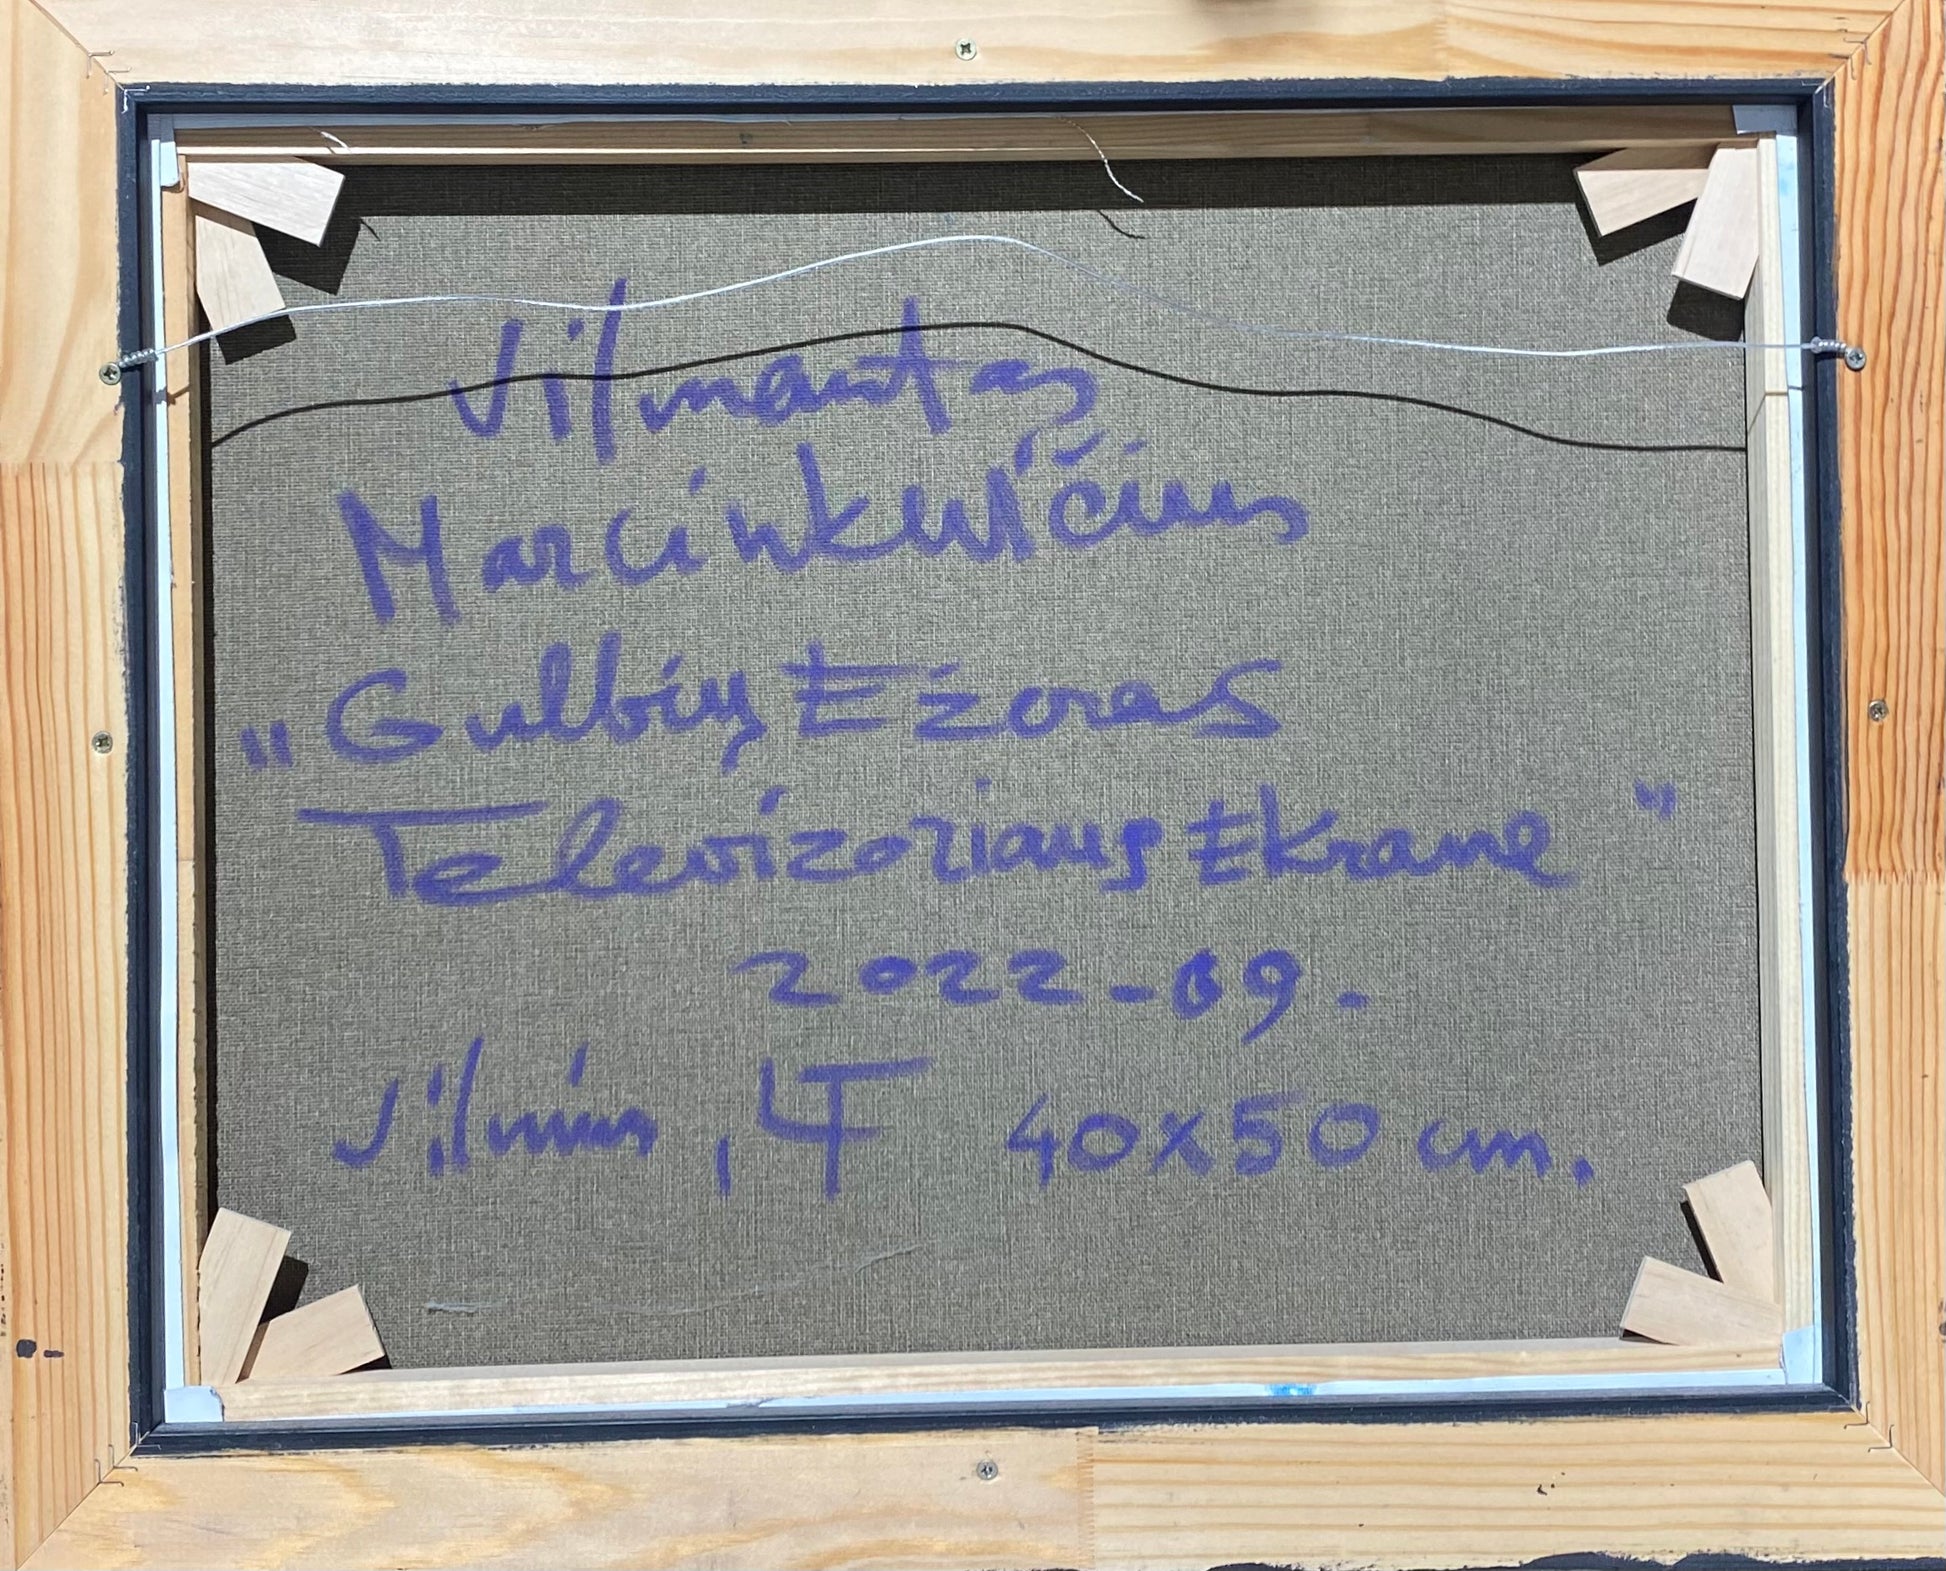 Vilmantas
Marcinkevičius
„Gulbių Ežeras
Televizoriaus Ekrane"
2022-09.
Vilnius, LT 40x50 cm.